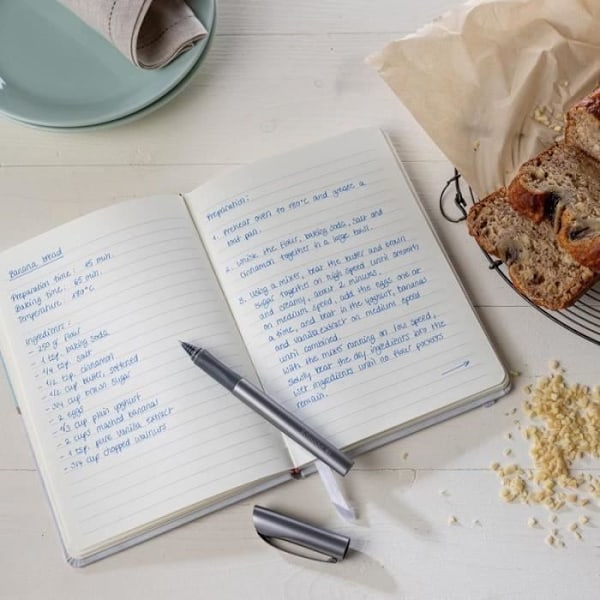 Banana bread
Preparation time: 15 min.
Baking time: 65 min.
Temperature: 180°C
Ingredients:
- 250 g flour
- 1 tsp. baking soda
- 1/4 tsp. salt
- 1/2 tsp. cinnamon
- 1/2 cup butter, softened
- 3/4 cup brown sugar
- 2 eggs
- 1/3 cup plain yoghurt
- 2 cups mashed bananas
- 1 tsp. pure vanilla extract
- 3/4 cup chopped walnuts
Preparation:
1. Preheat oven to 180°C and grease a
loaf pan.
2. Whisk the flour, baking soda, salt and
cinnamon together in a large bowl.
3. Using a mixer, beat the butter and brown
sugar together on high speed until smooth
and creamy, about 2 minutes.
on medium speed, add the eggs one at
a time, and beat in the yoghurt, bananas
and vanilla extract on medium speed
until combined.
With the mixer running on low speed,
slowly beat the dry ingredients into the
wet ingredients until no flour pockets
remain.